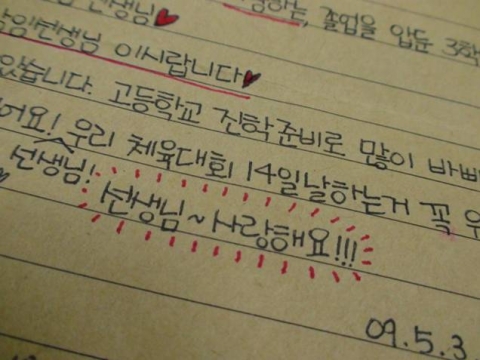 선생님♥
하는, 졸업을 앞둔 3학
담임선생님 이시랍니다♥
있습니다. 고등학교 진학준비로 많이 바빠
어요! 우리 체육대회 14일날하는거 꼭 우
선생님!
선생님~ 사랑해요!!!
09.5.3